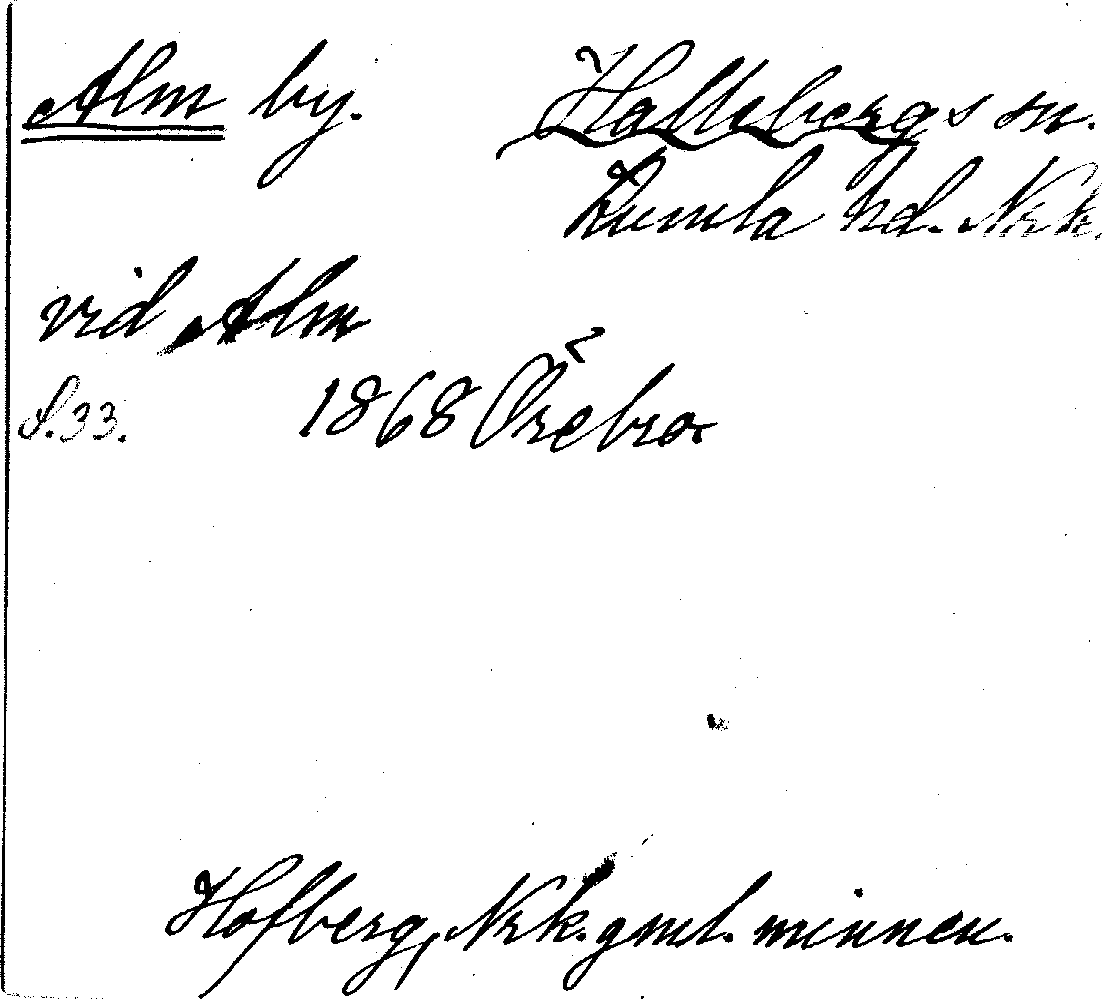 Alm by. Hallsbergs sn.
Kumla hd. Nrk.
vid Alm
S. 33. 1868 Örebro
Hofberg, Nrk. gml. minnen.